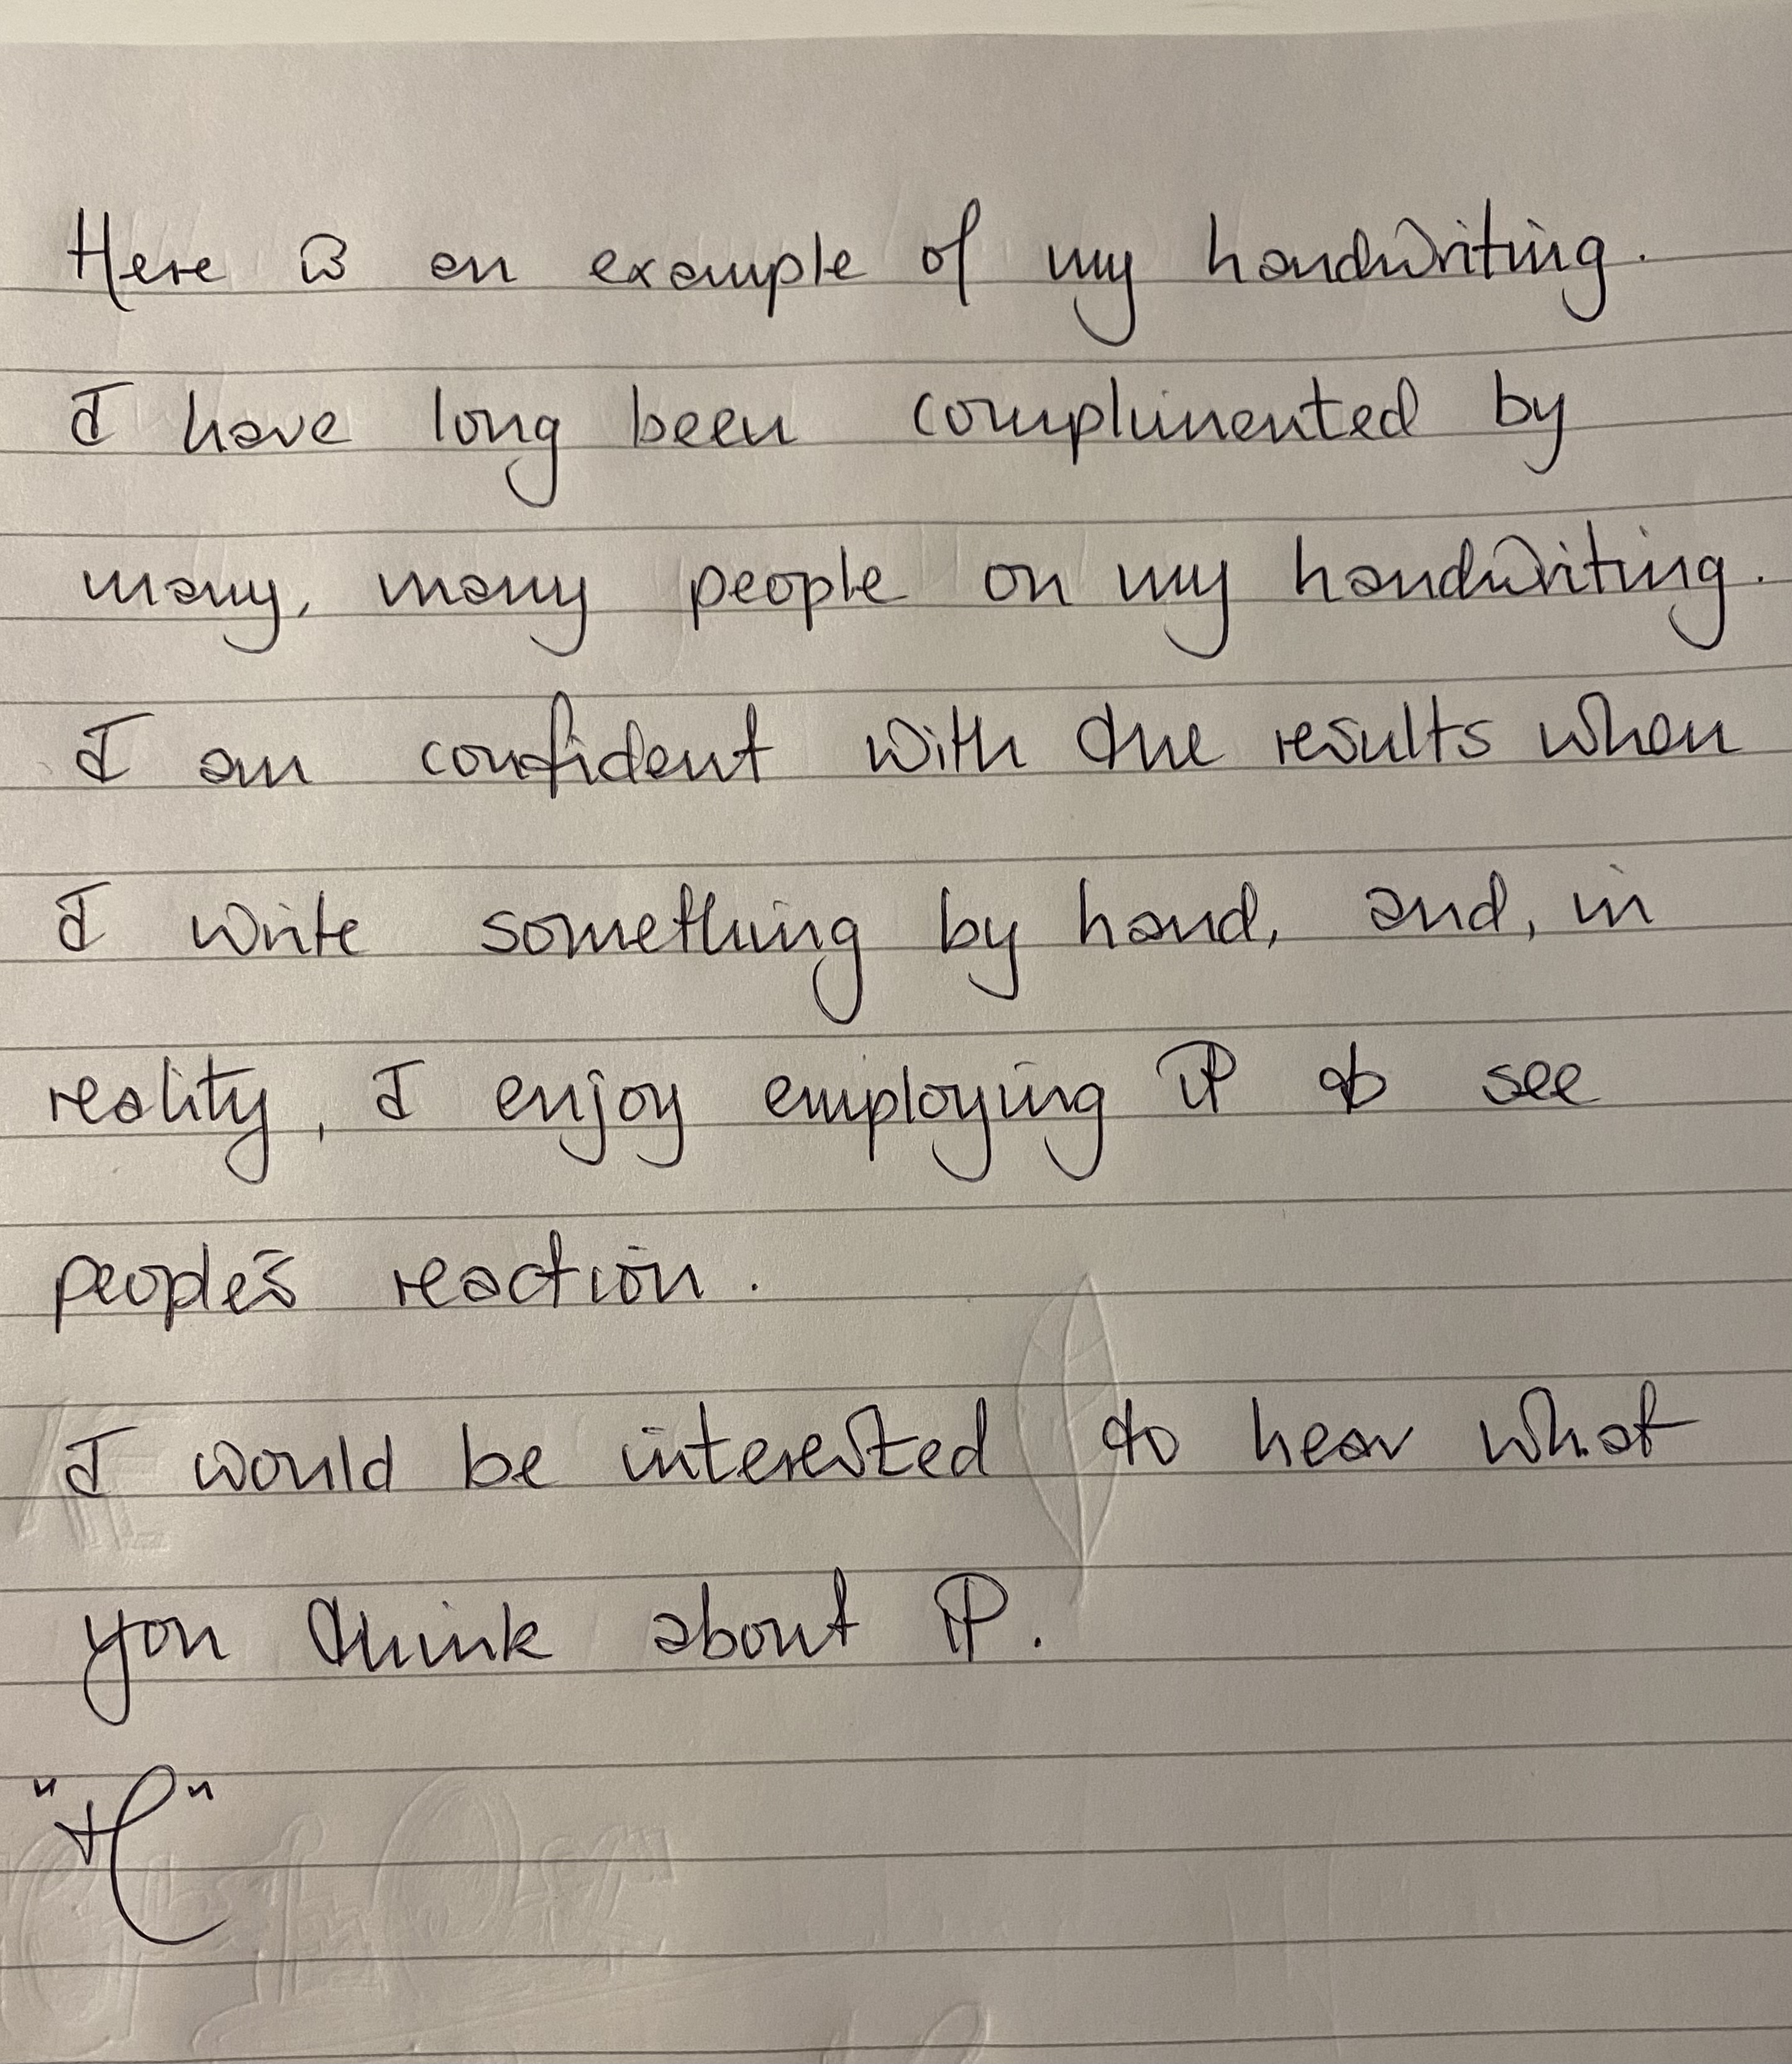 Here is an example of my handwriting.
I have long been complimented by
many, many people on my handwriting.
I am confident with the results when
I write something by hand, and, in
reality, I enjoy employing it to see
people's reaction.
I would be interested to hear what
you think about it.
"H"